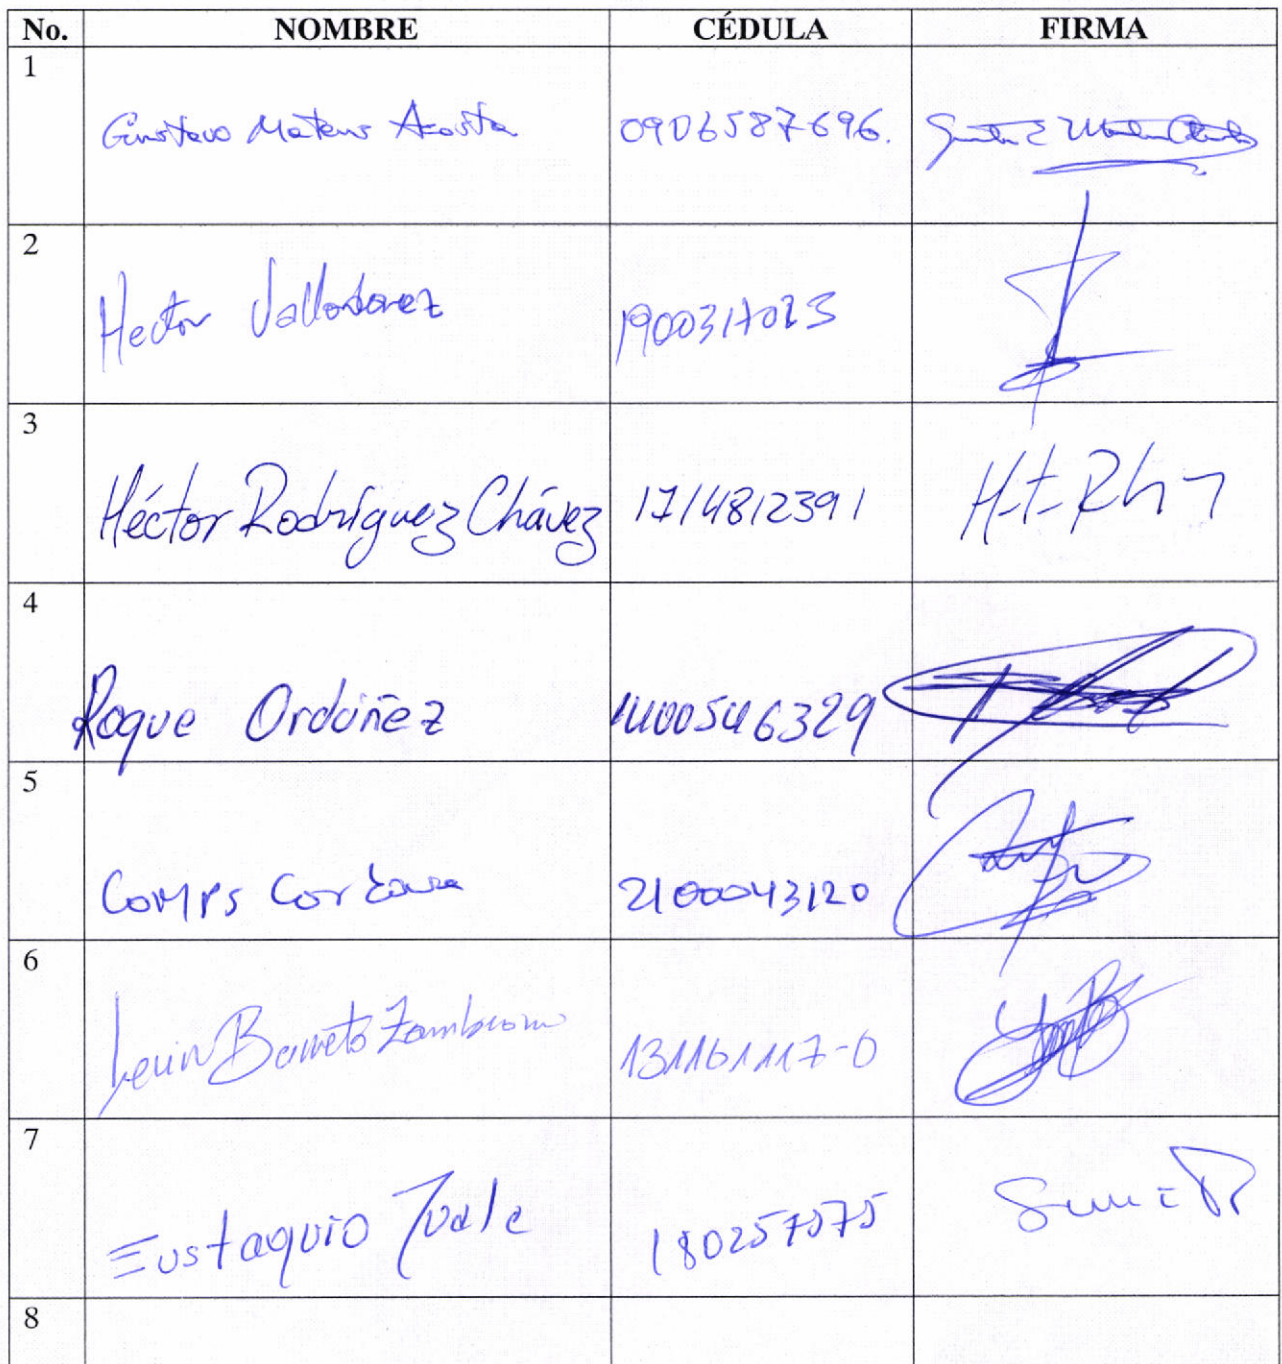 No. NOMBRE CÉDULA FIRMA
1 Gustavo Mateus Acosta 0906587696.
2 Hector Valladarez 1900317023
3 Héctor Rodríguez Chávez 1714812391
4 Roque Ordóñez 1400546329
5 Cordova 2100043120
6 Barreto Zambrano 131161117-0
7 Eustaquio 180257575
8